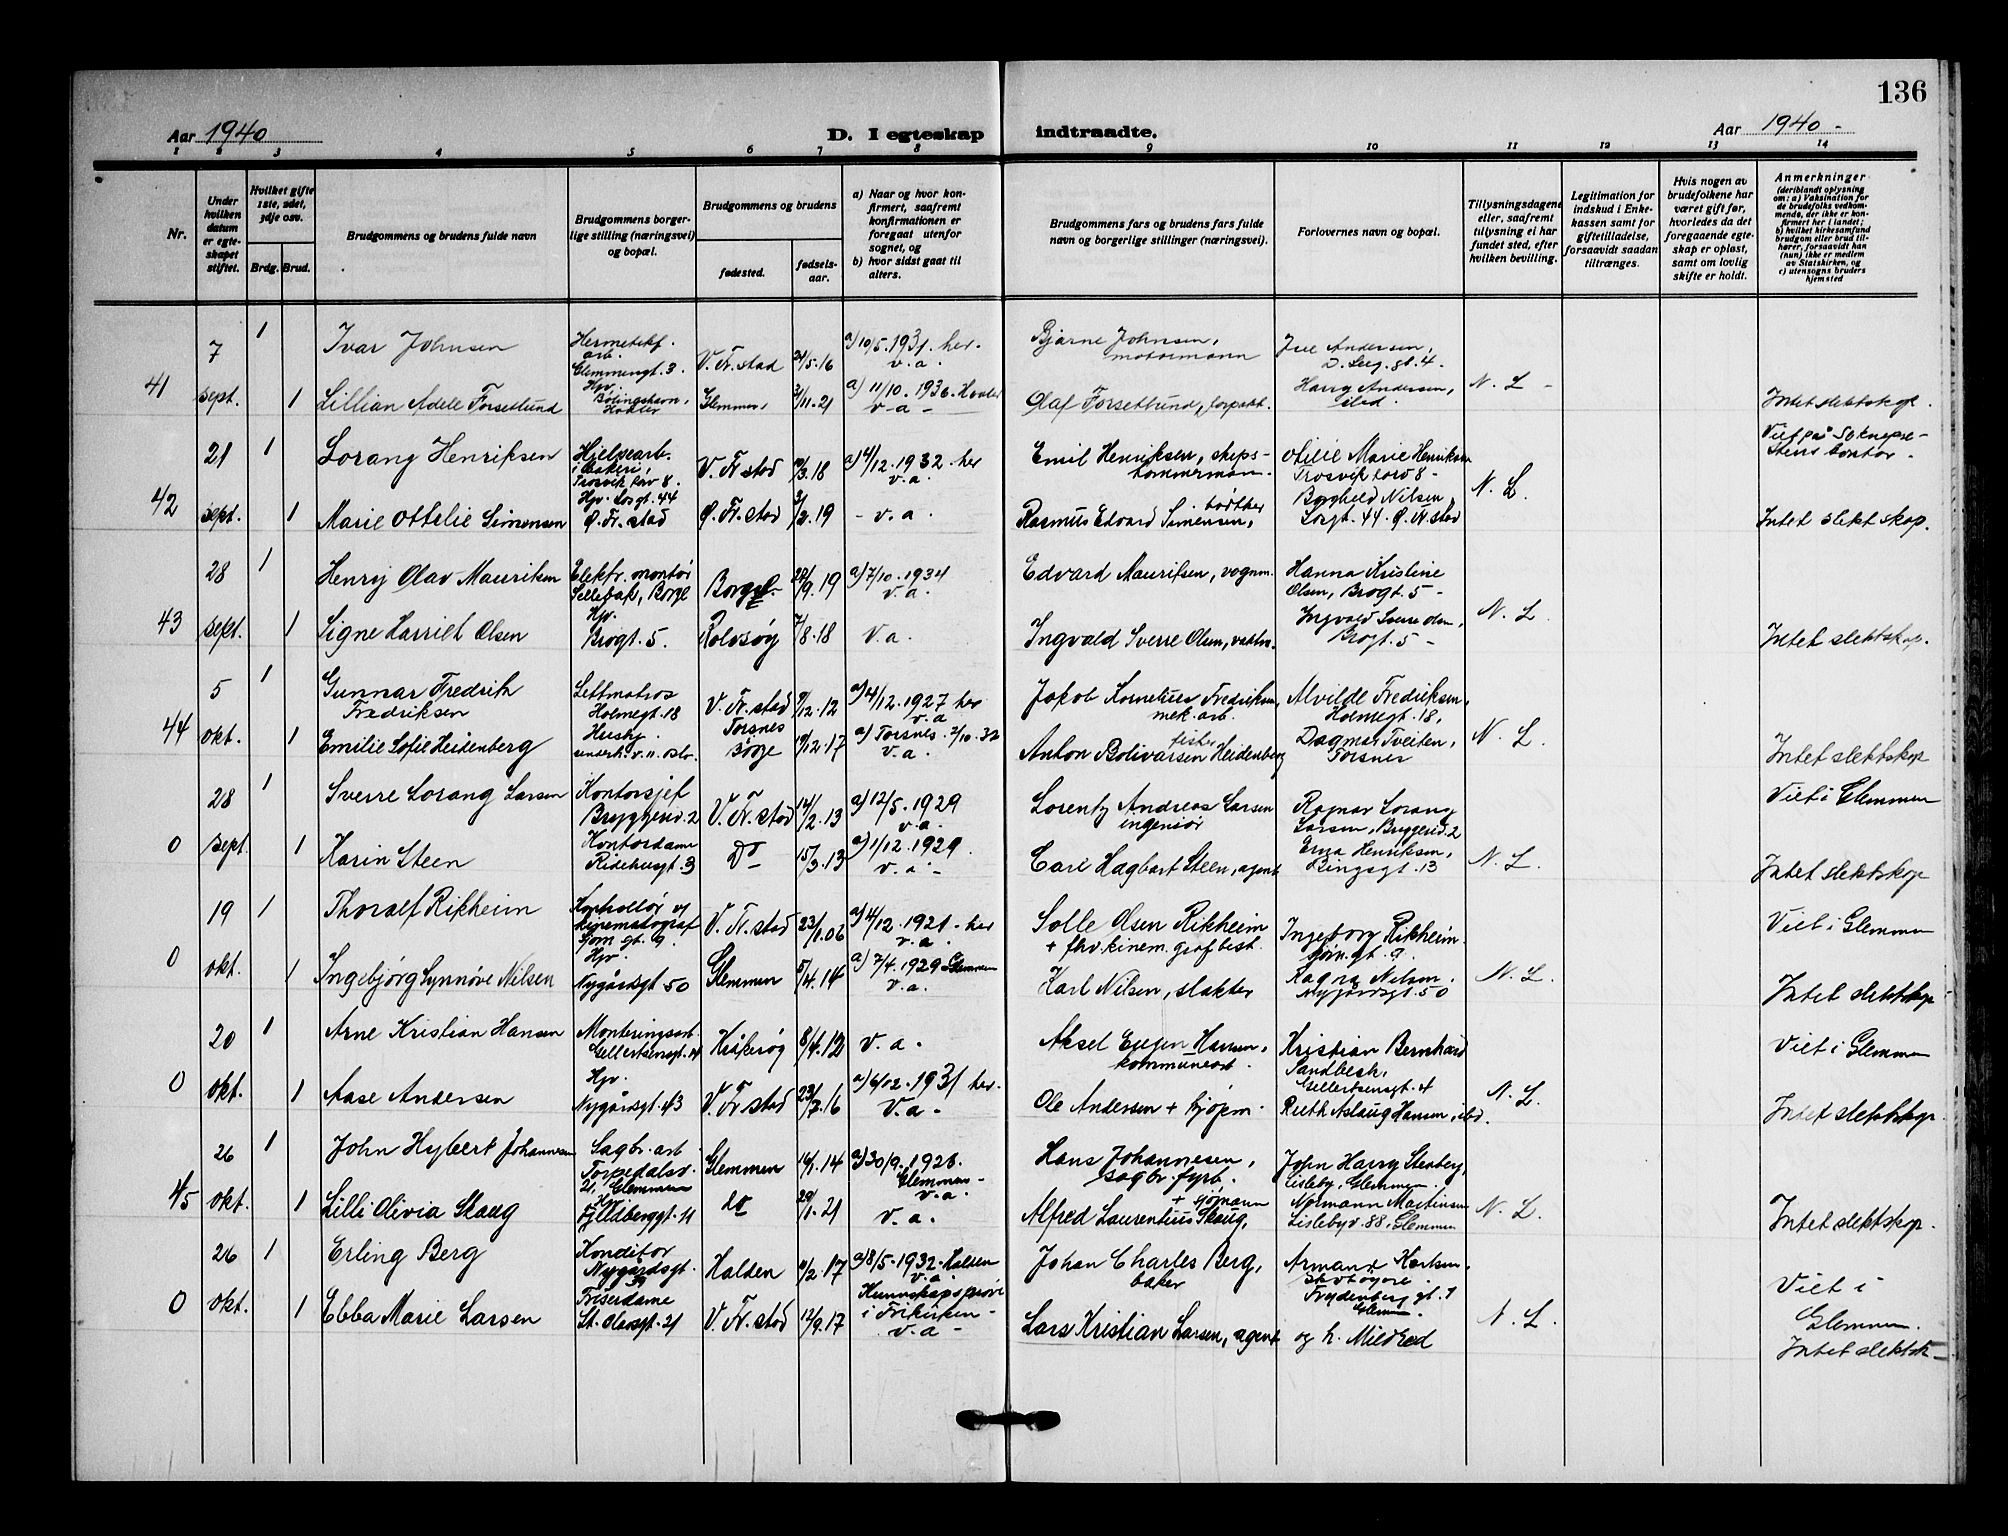 136
Aar 1940
D. I egteskap indtraadte.
Aar 1940 -
1 2 3 4 5 6 7 8 9 10 11 12 13 14
Nr.
Under hvilken datum er egteskapet stiftet.
Hvilket gifte 1ste, 2det, 3dje osv.
Brdg. Brud.
Brudgommens og brudens fulde navn
Brudgommens borgerlige stilling (næringsvei) og bopæl.
Brudgommens og brudens
fødested.
fødselsaar.
a) Naar og hvor konfirmert, saafremt konfirmationen er foregaat utenfor sognet, og
b) hvor sidst gaat til alters.
Brudgommens fars og brudens fars fulde navn og borgerlige stillinger (næringsvei).
Forlovernes navn og bopæl.
Tillysningsdagene eller, saafremt tillysning ei har fundet sted, efter hvilken bevilling.
Legitimation for indskud i Enkekassen samt for giftetilladelse, forsaavidt saadan tiltrænges.
Hvis nogen av brudefolkene har været gift før, hvorledes da det foregaaende egteskap er opløst, samt om lovlig skifte er holdt.
Anmerkninger
(deriblandt oplysning om: a) Vaksination for de brudefolks vedkommende, der ikke er konfirmert her i landet; b) hvilket kirkesamfund brudgom eller brud tilhører, forsaavidt han (hun) ikke er medlem av Statskirken, og c) utensogns bruders hjemsted
41
7 sept.
1 Ivar Johnsen
Hermetikf. arb. Glemmengt. 3
V. Fr.stad 24/5.16
a) 10/5.1931. her. v.a.
Bjarne Johnsen, motormann
Andersen, gt. 4.
1 Lillian Adele Forsetlund
Hpv.
Glemmen, 3/11-21
a) 11/10.1936. Hvaler v-a-
Olaf Forsetlund,
Harry Andersen, sted.
N. L -
Intet slektskap.
42
21 sept.
1 Lorang Henriksen
Hjelpearb. i bakeri, Trosvik torv 8.
V. Fr.stad 10/3.18
a) 4/12.1932. her v.a.
Emil Henriksen, skipstømmerman
Otilie Marie Henriksen Trosvik torv 8-
Viet på Soknepresstens kontor.
1 Marie Ottelie Simensen
Hpv. Losgt. 44 Ø. Fr.stad
Ø. Fr.stad 3/2.19
- v.a.
Rasmus Edvard Simensen, bødtker
Borghild Nilsen Losgt. 44. Ø. Fr.stad
N. L.
Intet slektskap.
43
28 sept.
1 Henry Olav Mauritsen
Elektr. montør Sellebak, Borge
Borge 28/9.19
a) 7/10.1934 v.a.
Edvard Mauritsen, vognm.
Hanna Kristine Olsen, Brogt. 5-
1 Signe Harriet Olsen
Hpv. Brogt. 5.
Rolvsøy 7/8.18
v.a.
Ingvald Sverre Olsen, vaktm.
Ingvald Sverre Olsen, Brogt. 5-
N. L.
Intet slektskap.
44
5 okt.
1 Gunnar Fredrik Fredriksen
Lettmatros Holmegt. 18
V. Fr.stad 9/12.12
a) 4/12.1927 her v.a
Jakob Kornelius Fredriksen, mek. arb.
Alvilde Fredriksen, Holmegt. 18,
1 Emilie Sofie Heidenberg
Hushj.
Torsnes Borge 19/12.17
a) Torsnes. 2/10.32 v.a.
Anton Bolivarsen Heidenberg fisker
Dagmar Tveiten, Torsnes
N. L.
Intet slektskap
0
28 sept.
1 Sverre Lorang Larsen
Kontorsjef Bryggeriv. 2
V. Fr.stad 14/2.13
a) 12/5.1929 v.a.
Lorentz Andreas Larsen ingeniør
Ragnar Lorang Larsen, Bryggeriv. 2
Viet i Glemmen
1 Karin Steen
Kontordame Ridehusgt. 3
Do 15/3.13
a) 1/12.1929. v.a.-
Carl Hagbart Steen, agent
Erna Henriksen, Ringsgt. 13
N. L.
Intet slektskap
0
19 okt.
1 Thoralf Rikheim
Kontrollør v/ kinematograf gt. 9.
V. Fr.stad 23/1.06
a) 4/12.1921- her v.a.
Solle Olsen Rikheim + fhv. kinem. graf best.
Ingeborg Rikheim gt. 9.
Viet i Glemmen
1 Ingebjørg Synnöve Nilsen
Hpv. Nygårdsgt 50
Glemmen 5/4.14
a) 7/4.1929 Glemmen v.a.
Karl Nilsen, slakter
Ragna Nilsen. Nygårdsgt. 50
N. L.
Intet slektskap
0
20 okt.
1 Arne Kristian Hansen
Monteringsarb. Gellertsensgt. 4
Kråkerøy 8/4.12
v.a.
Aksel Eugen Hansen, kommunearb.
Kristian Bernhard Sandbech, Gellertsensgt. 4
Viet i Glemmen
1 Aase Andersen
Hpv. Nygårdsgt. 43
V. Fr.stad 23/7.16
a) 6/12.1931 her. v.a-
Ole Andersen + kjøpm.
Ruth Aslaug Hansen, ibd.
N. L.
Intet slektskap.
45
26 okt.
1 John Hybert Johannesen
Sagbr. arb Torpedalsv. 21, Glemmen
Glemmen 16/1.14
a) 30/9.1928. Glemmen- v.a.
Hans Johannesen, sagbr. fyrb.
John Harry Stenberg, Lisleby, Glemmen.
1 Lilli Olivia Skaug
Hpv. Fjeldberggt. 11
do 29/1.21
v.a.
Alfred Laurentius Skaug, + sjømann
Normann Martinsen Lislebyv. 88, Glemmen
N. L.
Intet slektskap.
0
26 okt.
1 Erling Berg
Konditor Nygårdsgt. 39
Halden 11/2.17
a) 8/5.1932. Halden v.a.
Johan Charles Berg, baker
Armand Karlsen, Frydenberg gt. 1 Glemm.
Viet i Glemmen.
1 Ebba Marie Larsen
Friserdame St. Olavsgt. 21
V. Fr.stad 12/9.17
Kunnskapsprøve i Frikirken- v.a-
Lars Kristian Larsen, agent
og h. Mildred
N. L.
Intet slektsk-